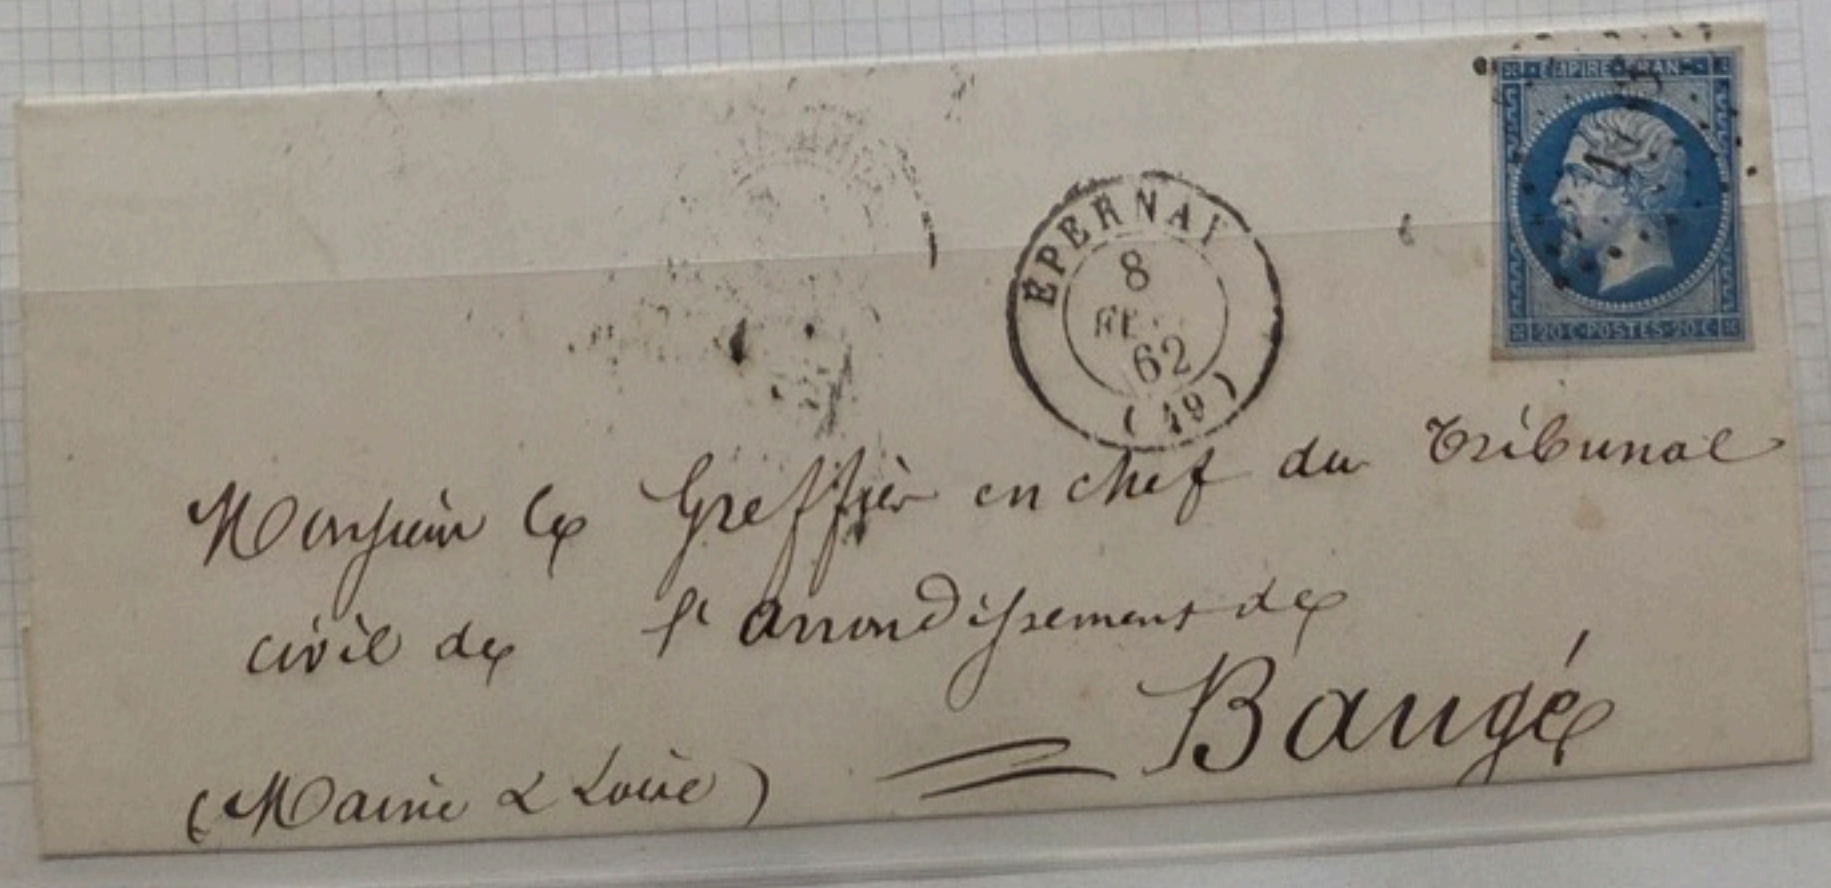 EMPIRE FRANC
20 C · POSTES · 20 C
EPERNAY
8
FE
62
(49)
Monsieur le Greffier en chef du Tribunal
civil de l'arrondissement de
Baugé
(Maine & Loire)